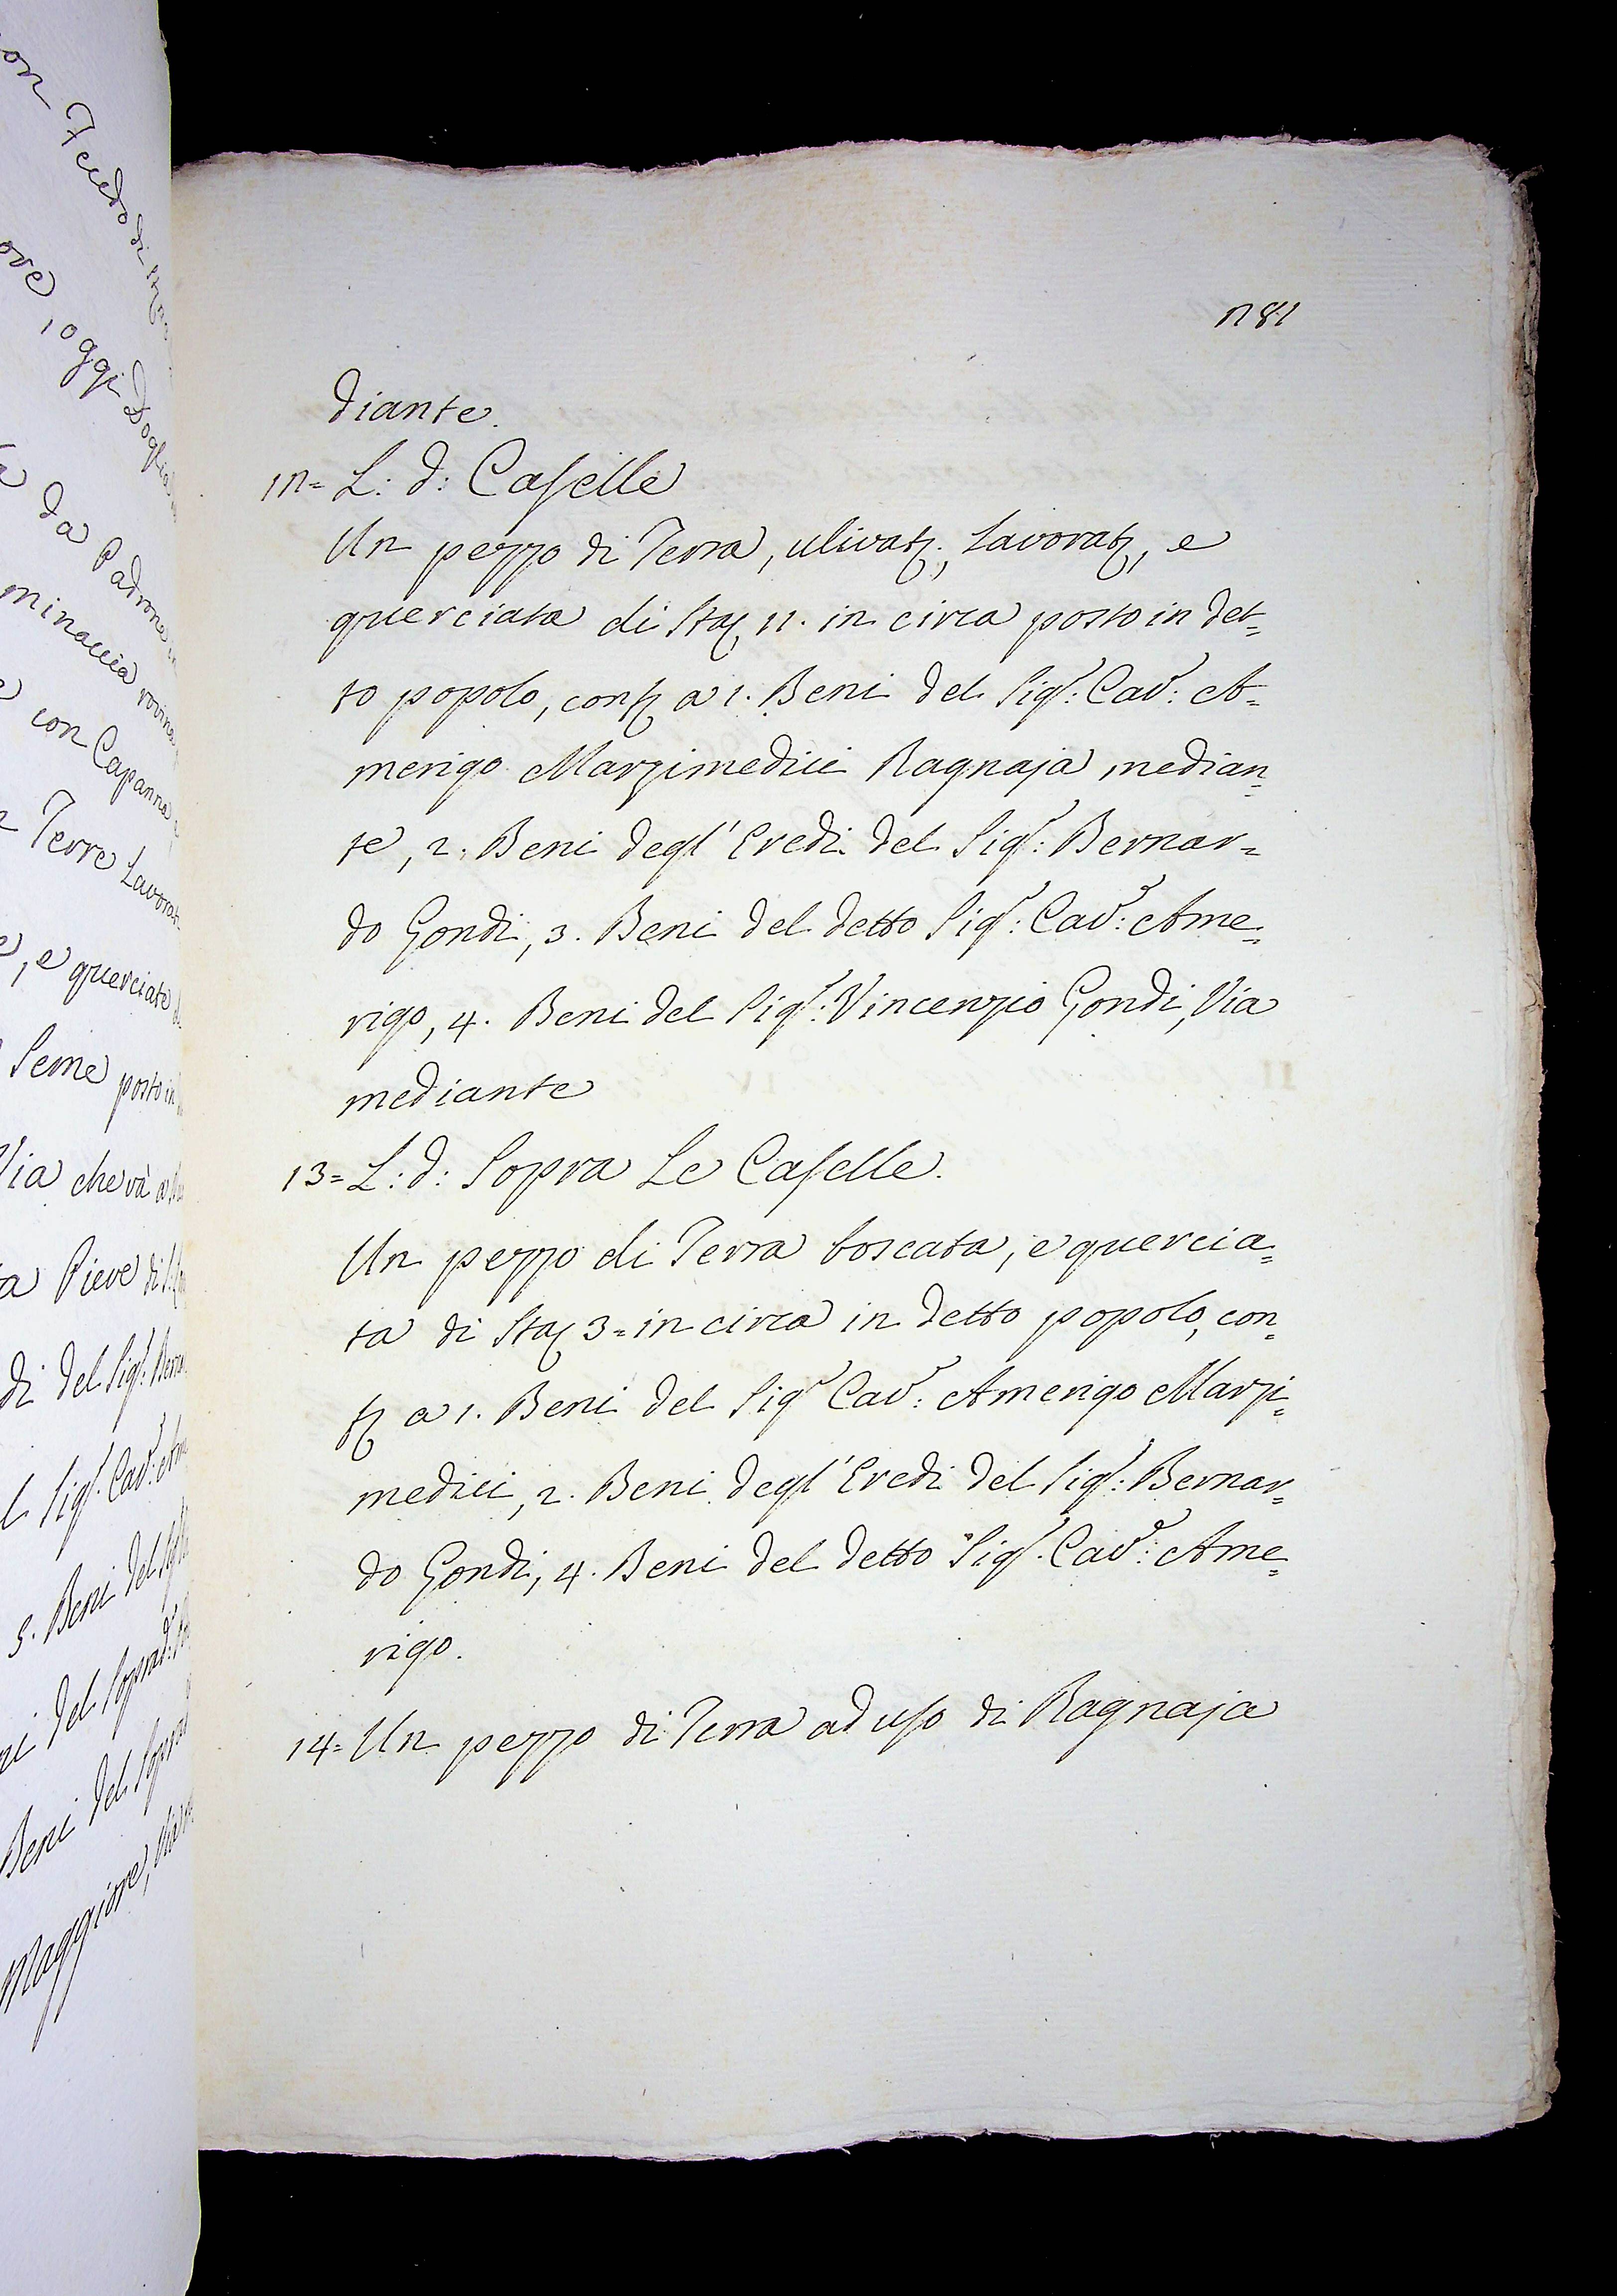 on Fecedo di
ove, oggi Doglia
da Padrone
minaccia rovina
con Capanna
Terre Lavorat
, e querciate
Seme posto in
Via che và a
a Pieve di
di del Sigr: Bern
Sigr: Cavr: Am
3. Beni del Sigr
ni del Soprad:
Beni del Soprad
Maggiore, Via
281
diante.
12= L: d: Caselle
Un pezzo di Terra, ulivata, Lavorata, e
querciata di Sta 11. in circa posto in det=
to popolo, conf a 1. Beni del Sigr: Cavr: A=
merigo Marzimedici Ragnaja median=
te, 2. Beni degl' Eredi del Sigr: Bernar=
do Gondi, 3. Beni del detto Sigr: Cavr: Ame=
rigo, 4. Beni del Sigr: Vincenzio Gondi, Via
mediante
13= L: d: Sopra Le Caselle.
Un pezzo di Terra boscata, e quercia=
ta di Sta 3= in circa in detto popolo, con=
f a 1. Beni del Sigr Cavr: Amerigo Marzi=
medici, 2. Beni degl' Eredi del Sigr: Bernar=
do Gondi, 4. Beni del detto Sigr. Cavr: Ame=
rigo.
14= Un pezzo di Terra ad uso di Ragnaja